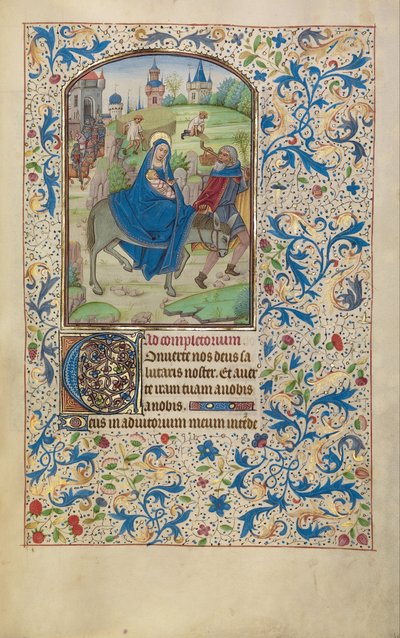 Ad completorium
Converte nos deus sa
lutaris noster. Et auer
te iram tuam a nobis
a nobis.
Deus in adiutorium meum inten de